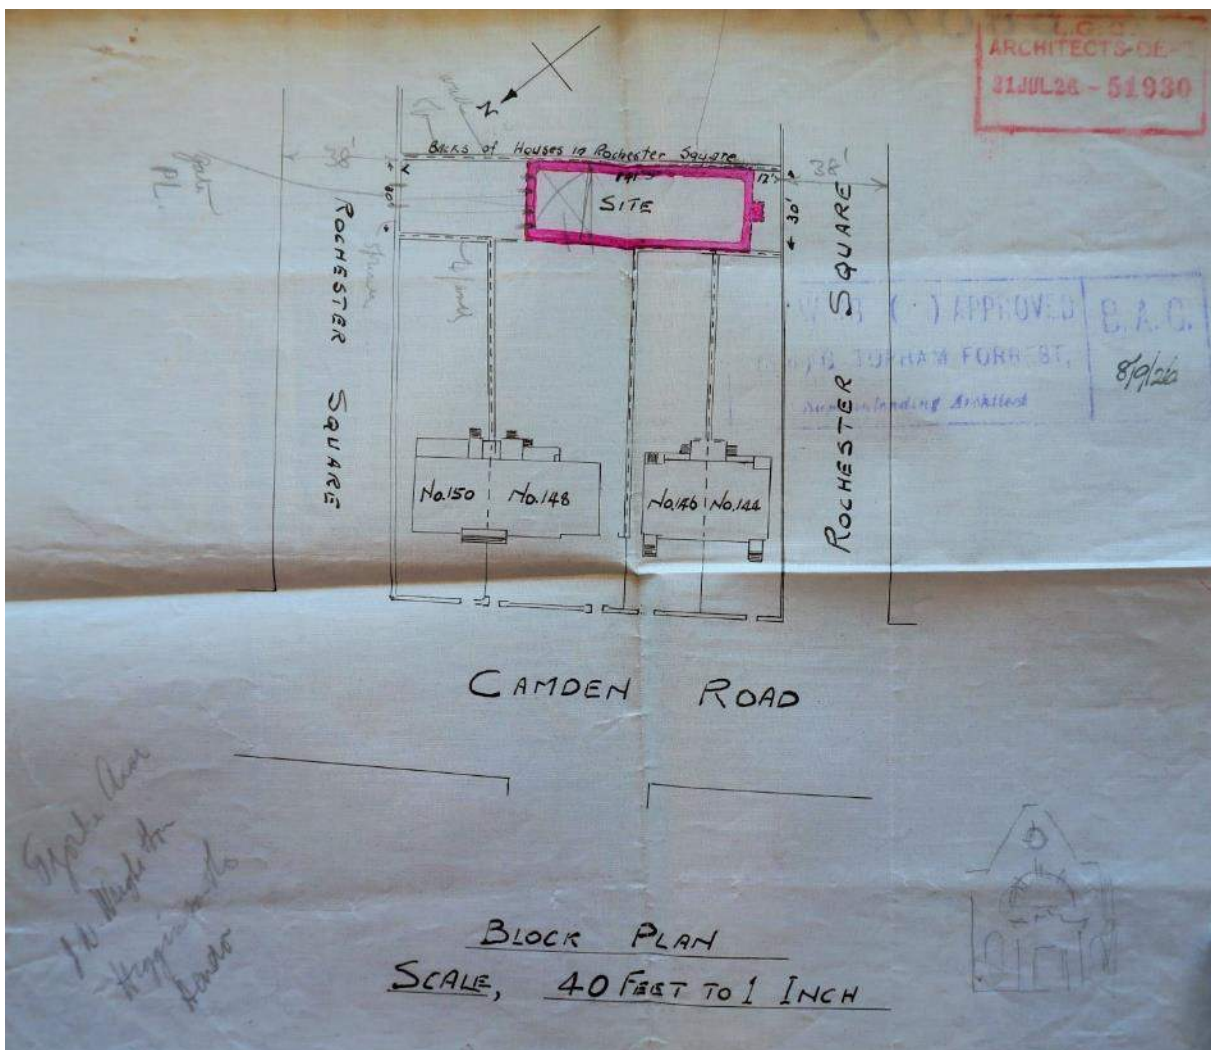 L.C.C.
ARCHITECTS DE
21 JUL 26 - 51930
N
Backs of Houses in Rochester Square
38'
38'
12'
30'
30'
SITE
gate
PL.
ROCHESTER SQUARE
ROCHESTER SQUARE
APPROVED
TOPHAM FORREST,
Superintending Architect
B.A.C.
8/9/26
No.150
No.148
No.146
No.144
CAMDEN ROAD
BLOCK PLAN
SCALE, 40 FEET TO 1 INCH